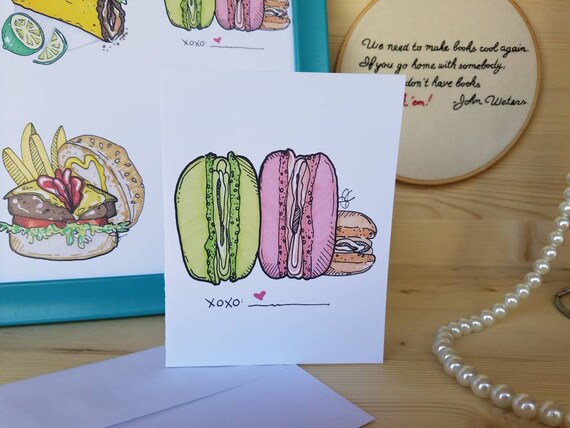 XOXO:
We need to make books cool again.
If you go home with somebody,
don't have books
'em!
-John Waters
XOXO: